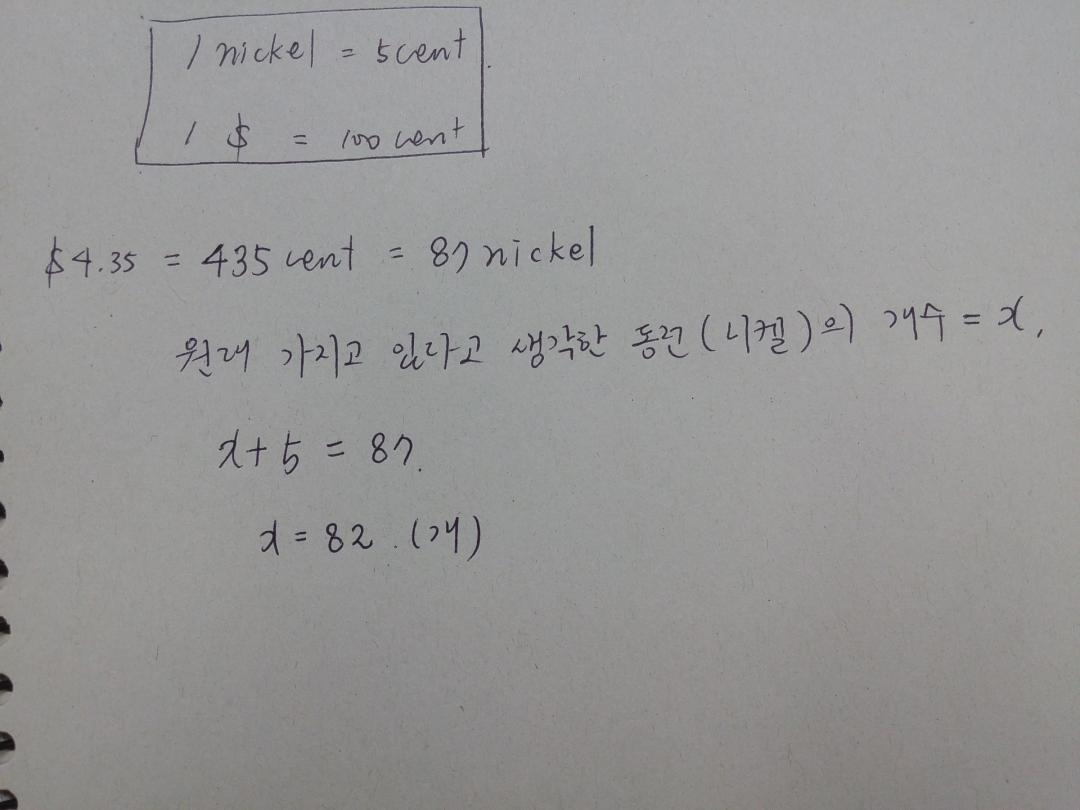 1 nickel = 5 cent
1 $ = 100 cent
$4.35 = 435 cent = 87 nickel
원래 가지고 있다고 생각한 동전(니켈)의 개수 = x,
x + 5 = 87.
x = 82. (개)